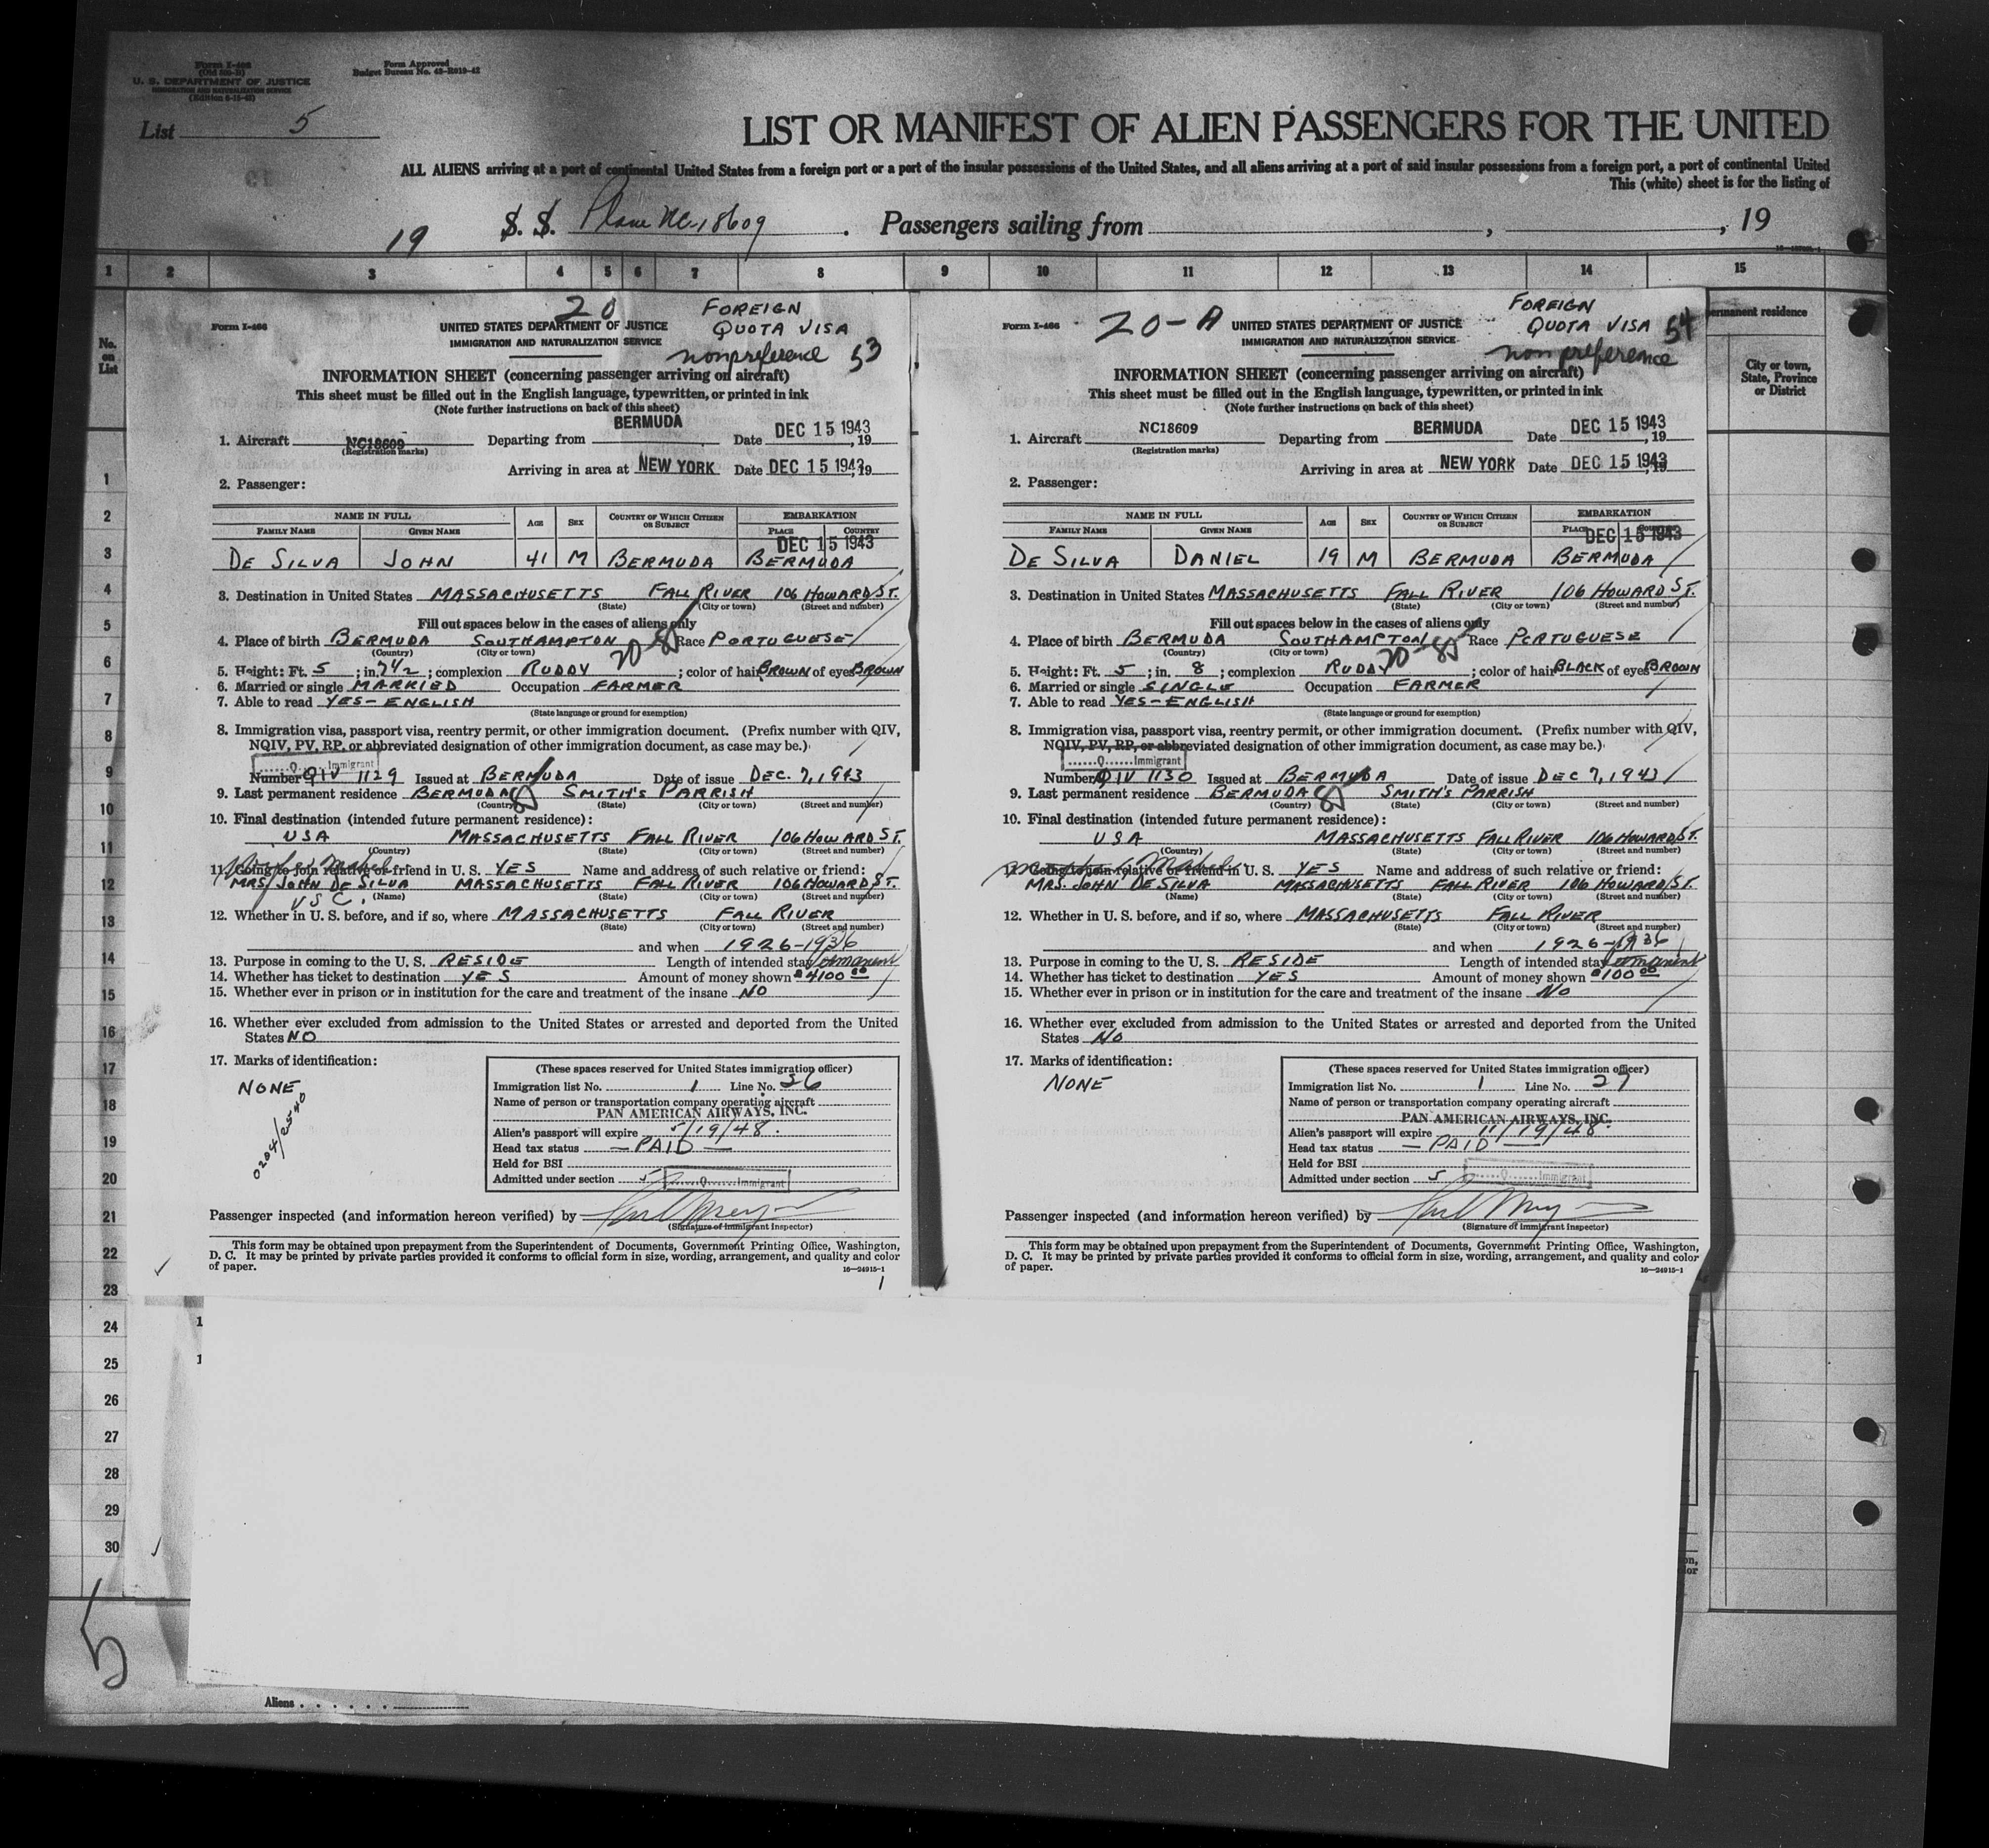 Form I-466
(Old 500-B)
U. S. DEPARTMENT OF JUSTICE
IMMIGRATION AND NATURALIZATION SERVICE
Form Approved
Budget Bureau No. 43-R019-42
List 5
LIST OR MANIFEST OF ALIEN PASSENGERS FOR THE UNITED
ALL ALIENS arriving at a port of continental United States from a foreign port or a port of the insular possessions of the United States, and all aliens arriving at a port of said insular possessions from a foreign port, a port of continental United
This (white) sheet is for the listing of
19 S. S. Plane NC-18609. Passengers sailing from , , 19
1 2 3 4 5 6 7 8 9 10 11 12 13 14 15
No. on List
1
2
3
4
5
6
7
8
9
10
11
12
13
14
15
16
17
18
19
20
21
22
23
24
25
26
27
28
29
30
5
20
FOREIGN
Form I-466 UNITED STATES DEPARTMENT OF JUSTICE QUOTA VISA
IMMIGRATION AND NATURALIZATION SERVICE
nonpreference 53
INFORMATION SHEET (concerning passenger arriving on aircraft)
This sheet must be filled out in the English language, typewritten, or printed in ink
(Note further instructions on back of this sheet)
1. Aircraft NC18609 Departing from BERMUDA Date DEC 15 1943, 19
(Registration marks)
Arriving in area at NEW YORK Date DEC 15 1943, 19
2. Passenger:
NAME IN FULL AGE SEX COUNTRY OF WHICH CITIZEN OR SUBJECT EMBARKATION
FAMILY NAME GIVEN NAME PLACE COUNTRY
DEC 15 1943
DE SILVA JOHN 41 M BERMUDA BERMUDA
3. Destination in United States MASSACHUSETTS FALL RIVER 106 HOWARD ST.
(State) (City or town) (Street and number)
Fill out spaces below in the cases of aliens only
4. Place of birth BERMUDA SOUTHAMPTON Race PORTUGUESE
(Country) (City or town)
5. Height: Ft. 5 ; in. 7 1/2 ; complexion RUDDY ; color of hair BROWN of eyes BROWN
6. Married or single MARRIED Occupation FARMER
7. Able to read YES - ENGLISH
(State language or ground for exemption)
8. Immigration visa, passport visa, reentry permit, or other immigration document. (Prefix number with QIV,
NQIV, PV, RP, or abbreviated designation of other immigration document, as case may be.)
Q Immigrant
Number QIV 1129 Issued at BERMUDA Date of issue DEC. 7, 1943
9. Last permanent residence BERMUDA SMITH'S PARRISH
(Country) (State) (City or town) (Street and number)
10. Final destination (intended future permanent residence):
USA MASSACHUSETTS FALL RIVER 106 HOWARD ST.
(Country) (State) (City or town) (Street and number)
11. Going to join relative or friend in U. S. YES Name and address of such relative or friend:
MRS. JOHN DE SILVA MASSACHUSETTS FALL RIVER 106 HOWARD ST.
USC. (Name) (State) (City or town) (Street and number)
12. Whether in U. S. before, and if so, where MASSACHUSETTS FALL RIVER
(State) (City or town) (Street and number)
and when 1926-1936
13. Purpose in coming to the U. S. RESIDE Length of intended stay Permanent
14. Whether has ticket to destination YES Amount of money shown $4100.00
15. Whether ever in prison or in institution for the care and treatment of the insane NO
16. Whether ever excluded from admission to the United States or arrested and deported from the United
States NO
17. Marks of identification:
NONE
0204/25540
(These spaces reserved for United States immigration officer)
Immigration list No. 1 Line No. 26
Name of person or transportation company operating aircraft
PAN AMERICAN AIRWAYS, INC.
Alien's passport will expire 5/19/48.
Head tax status — PAID —
Held for BSI
Admitted under section 5 Q Immigrant
Passenger inspected (and information hereon verified) by
(Signature of immigrant inspector)
This form may be obtained upon prepayment from the Superintendent of Documents, Government Printing Office, Washington,
D. C. It may be printed by private parties provided it conforms to official form in size, wording, arrangement, and quality and color
of paper. 16—24915-1
1
FOREIGN
Form I-466 20-A UNITED STATES DEPARTMENT OF JUSTICE QUOTA VISA 54
IMMIGRATION AND NATURALIZATION SERVICE
nonpreference
INFORMATION SHEET (concerning passenger arriving on aircraft)
This sheet must be filled out in the English language, typewritten, or printed in ink
(Note further instructions on back of this sheet)
1. Aircraft NC18609 Departing from BERMUDA Date DEC 15 1943, 19
(Registration marks)
Arriving in area at NEW YORK Date DEC 15 1943, 19
2. Passenger:
NAME IN FULL AGE SEX COUNTRY OF WHICH CITIZEN OR SUBJECT EMBARKATION
FAMILY NAME GIVEN NAME PLACE COUNTRY
DEC 15 1943
DE SILVA DANIEL 19 M BERMUDA BERMUDA
3. Destination in United States MASSACHUSETTS FALL RIVER 106 HOWARD ST.
(State) (City or town) (Street and number)
Fill out spaces below in the cases of aliens only
4. Place of birth BERMUDA SOUTHAMPTON Race PORTUGUESE
(Country) (City or town)
5. Height: Ft. 5 ; in. 8 ; complexion RUDDY ; color of hair BLACK of eyes BROWN
6. Married or single SINGLE Occupation FARMER
7. Able to read YES - ENGLISH
(State language or ground for exemption)
8. Immigration visa, passport visa, reentry permit, or other immigration document. (Prefix number with QIV,
NQIV, PV, RP, or abbreviated designation of other immigration document, as case may be.)
Q Immigrant
Number QIV 1130 Issued at BERMUDA Date of issue DEC 7, 1943
9. Last permanent residence BERMUDA SMITH'S PARRISH
(Country) (State) (City or town) (Street and number)
10. Final destination (intended future permanent residence):
USA MASSACHUSETTS FALL RIVER 106 HOWARD ST.
(Country) (State) (City or town) (Street and number)
11. Going to join relative or friend in U. S. YES Name and address of such relative or friend:
MRS. JOHN DE SILVA MASSACHUSETTS FALL RIVER 106 HOWARD ST.
(Name) (State) (City or town) (Street and number)
12. Whether in U. S. before, and if so, where MASSACHUSETTS FALL RIVER
(State) (City or town) (Street and number)
and when 1926-1936
13. Purpose in coming to the U. S. RESIDE Length of intended stay Permanent
14. Whether has ticket to destination YES Amount of money shown $100.00
15. Whether ever in prison or in institution for the care and treatment of the insane NO
16. Whether ever excluded from admission to the United States or arrested and deported from the United
States NO
17. Marks of identification:
NONE
(These spaces reserved for United States immigration officer)
Immigration list No. 1 Line No. 27
Name of person or transportation company operating aircraft
PAN AMERICAN AIRWAYS, INC.
Alien's passport will expire 11/19/48
Head tax status — PAID —
Held for BSI
Admitted under section 5 Q Immigrant
Passenger inspected (and information hereon verified) by
(Signature of immigrant inspector)
This form may be obtained upon prepayment from the Superintendent of Documents, Government Printing Office, Washington,
D. C. It may be printed by private parties provided it conforms to official form in size, wording, arrangement, and quality and color
of paper. 16—24915-1
permanent residence
City or town,
State, Province
or District
Aliens